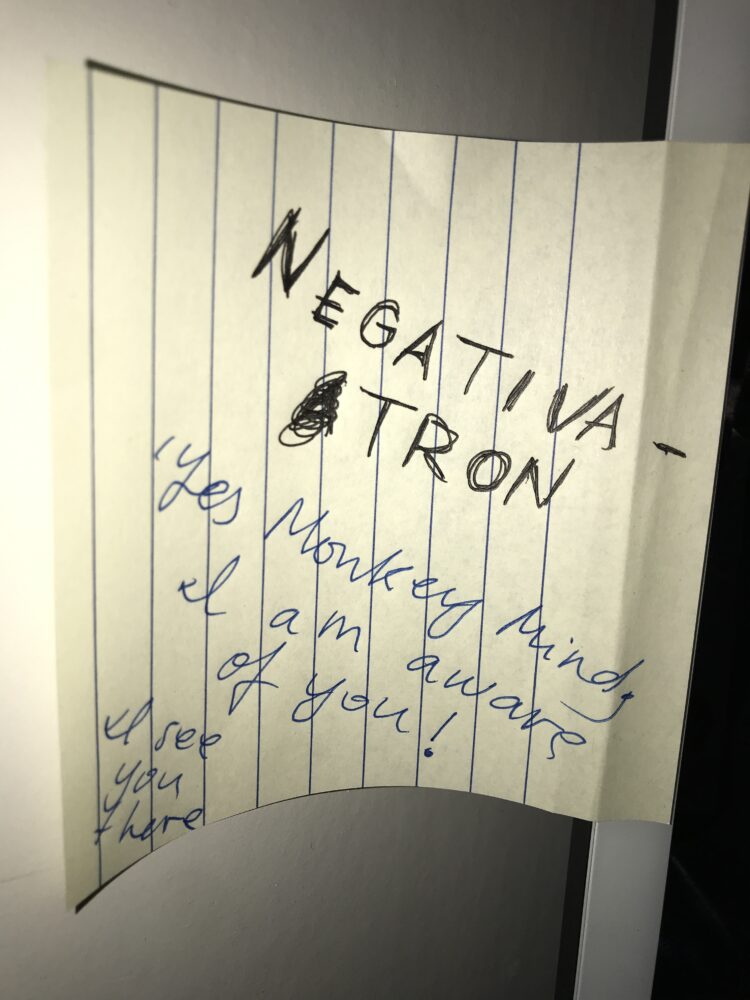 NEGATIVA-
TRON
"Yes Monkey Mind,
I am aware
of you!
I see
you
there